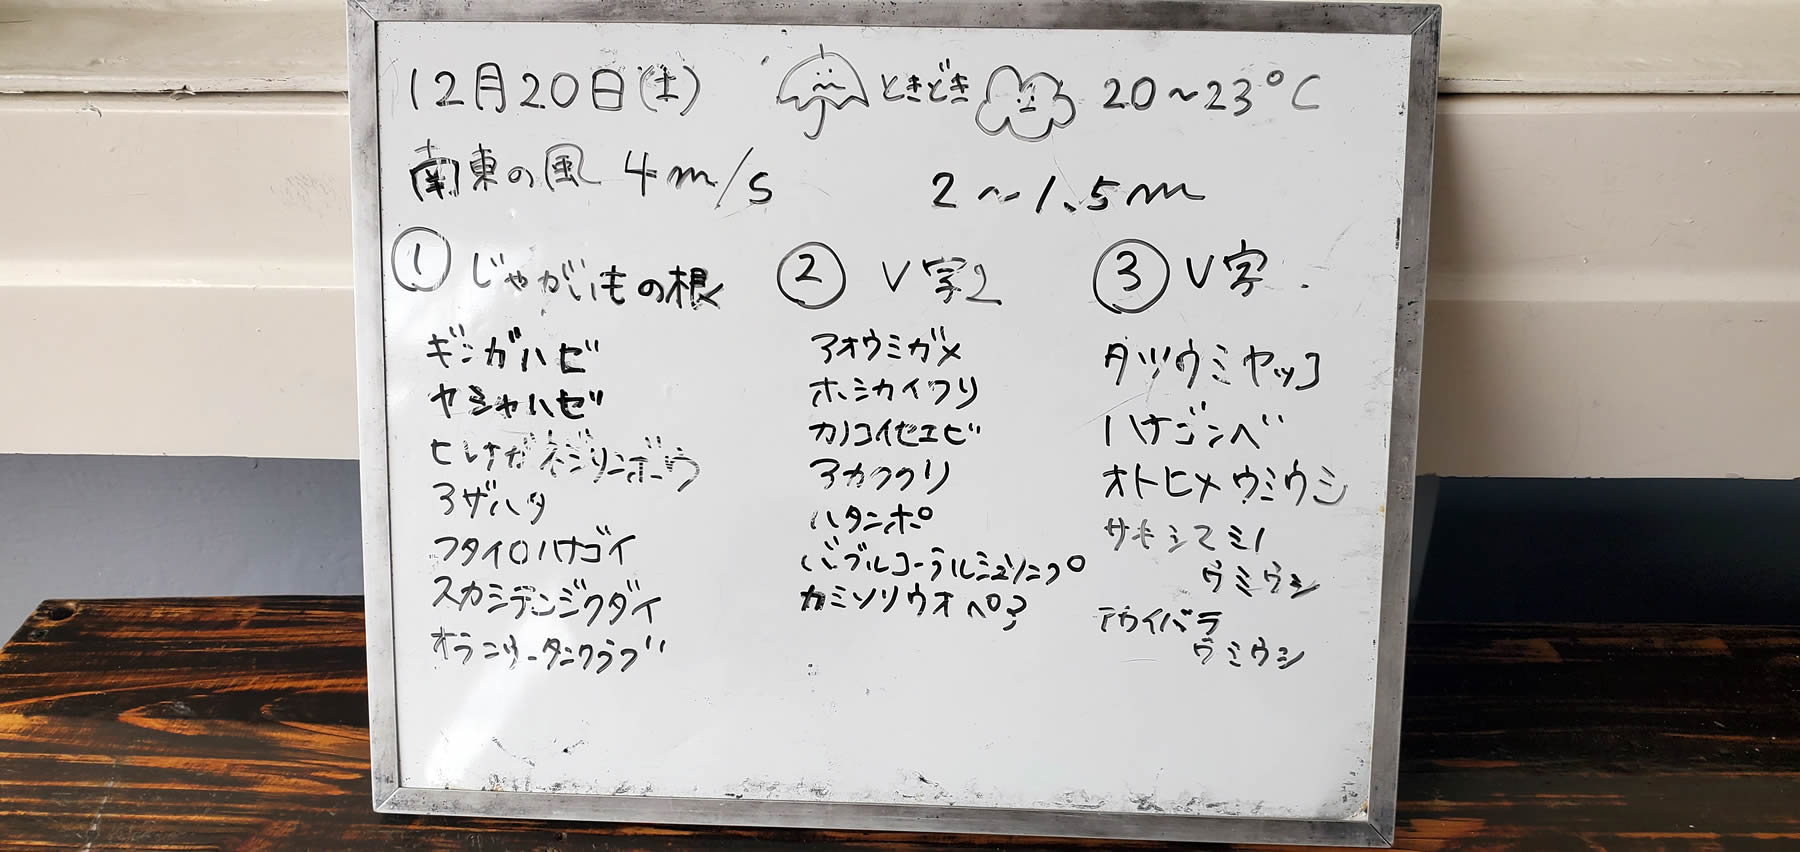 12月20日(土) ときどき 20〜23°C
南東の風 4m/s 2〜1.5m
① じゃがいもの根
ギンガハゼ
ヤシャハゼ
ヒレナガネジリンボウ
アザハタ
フタイロハナゴイ
スカシテンジクダイ
オランウータンクラブ
② V字2
アオウミガメ
ホシカイワリ
カノコイセエビ
アカククリ
ハタンポ
バブルコーラルシュリンプ
カミソリウオペア
③ V字
タツウミヤッコ
ハナゴンベ
オトヒメウミウシ
サキシマミノ
ウミウシ
ウミウシ